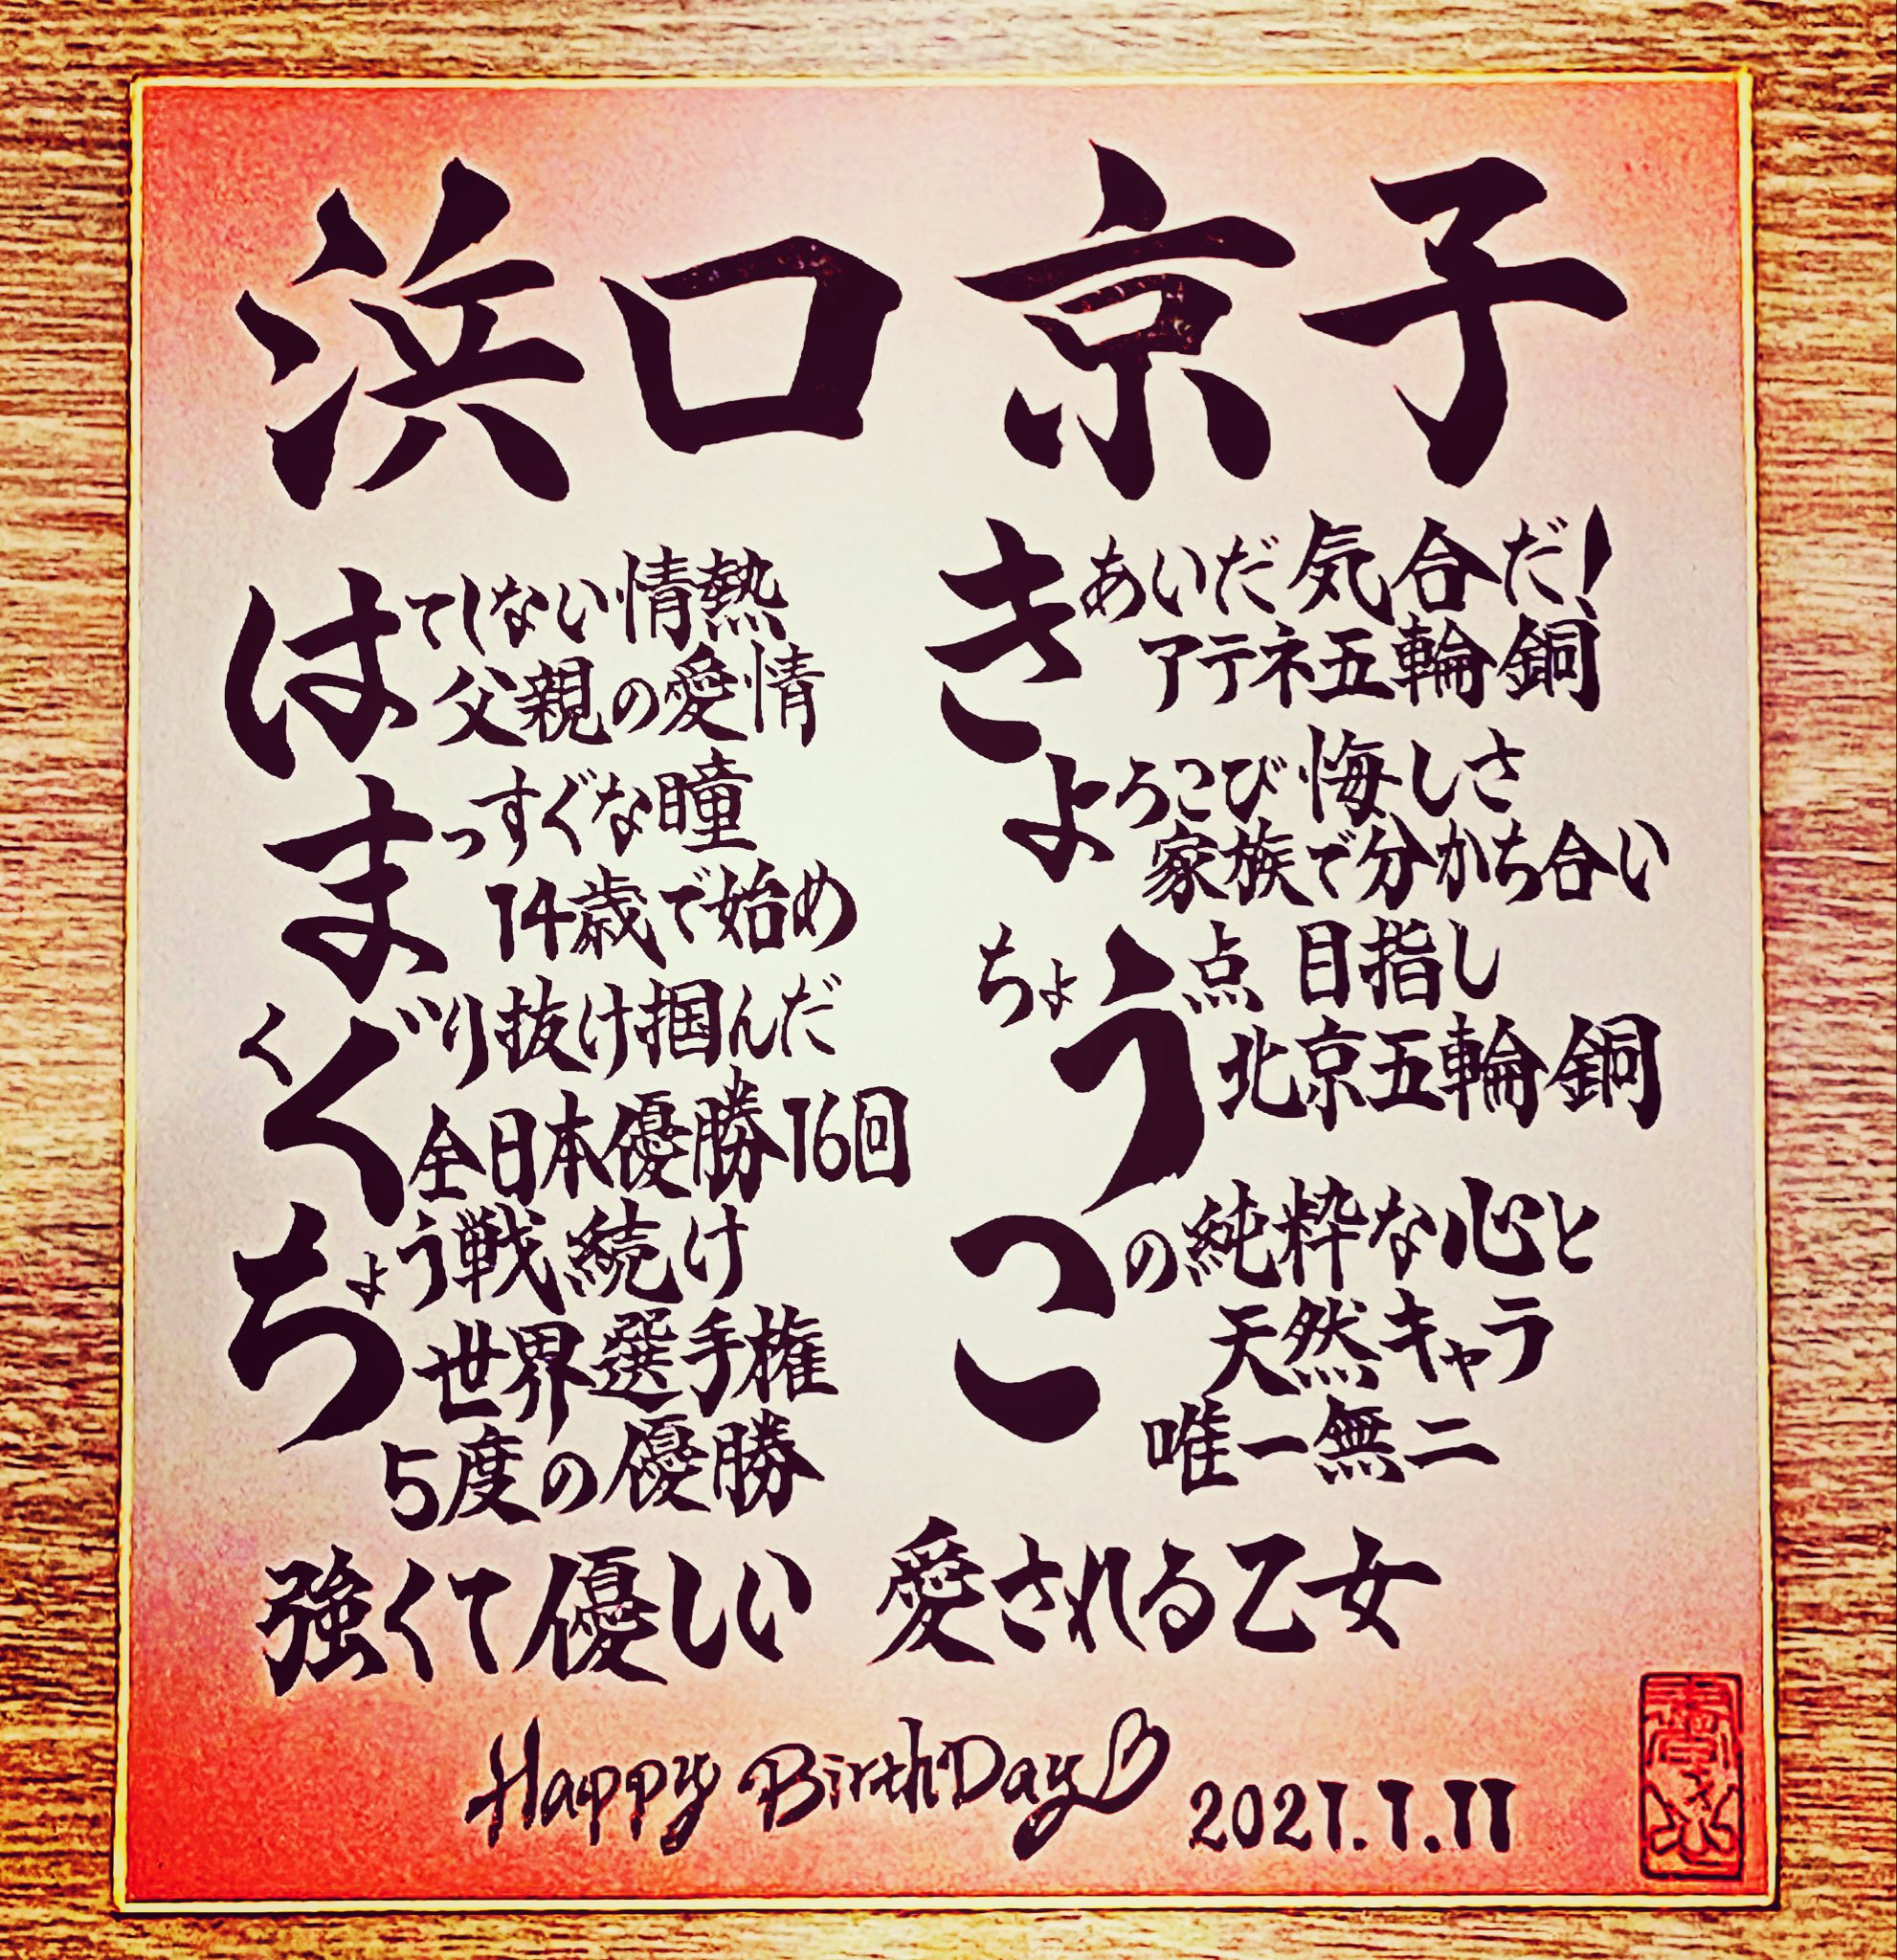 浜口京子
はてしない情熱
父親の愛情
まっすぐな瞳
14歳で始め
くぐり抜け掴んだ
全日本優勝16回
ちょう戦続け
世界選手権
5度の優勝
きあいだ気合だ!
アテネ五輪銅
よろこび悔しさ
家族で分かち合い
ちょう点目指し
北京五輪銅
この純粋な心と
天然キャラ
唯一無二
強くて優しい 愛される乙女
Happy BirthDay
2021.1.11